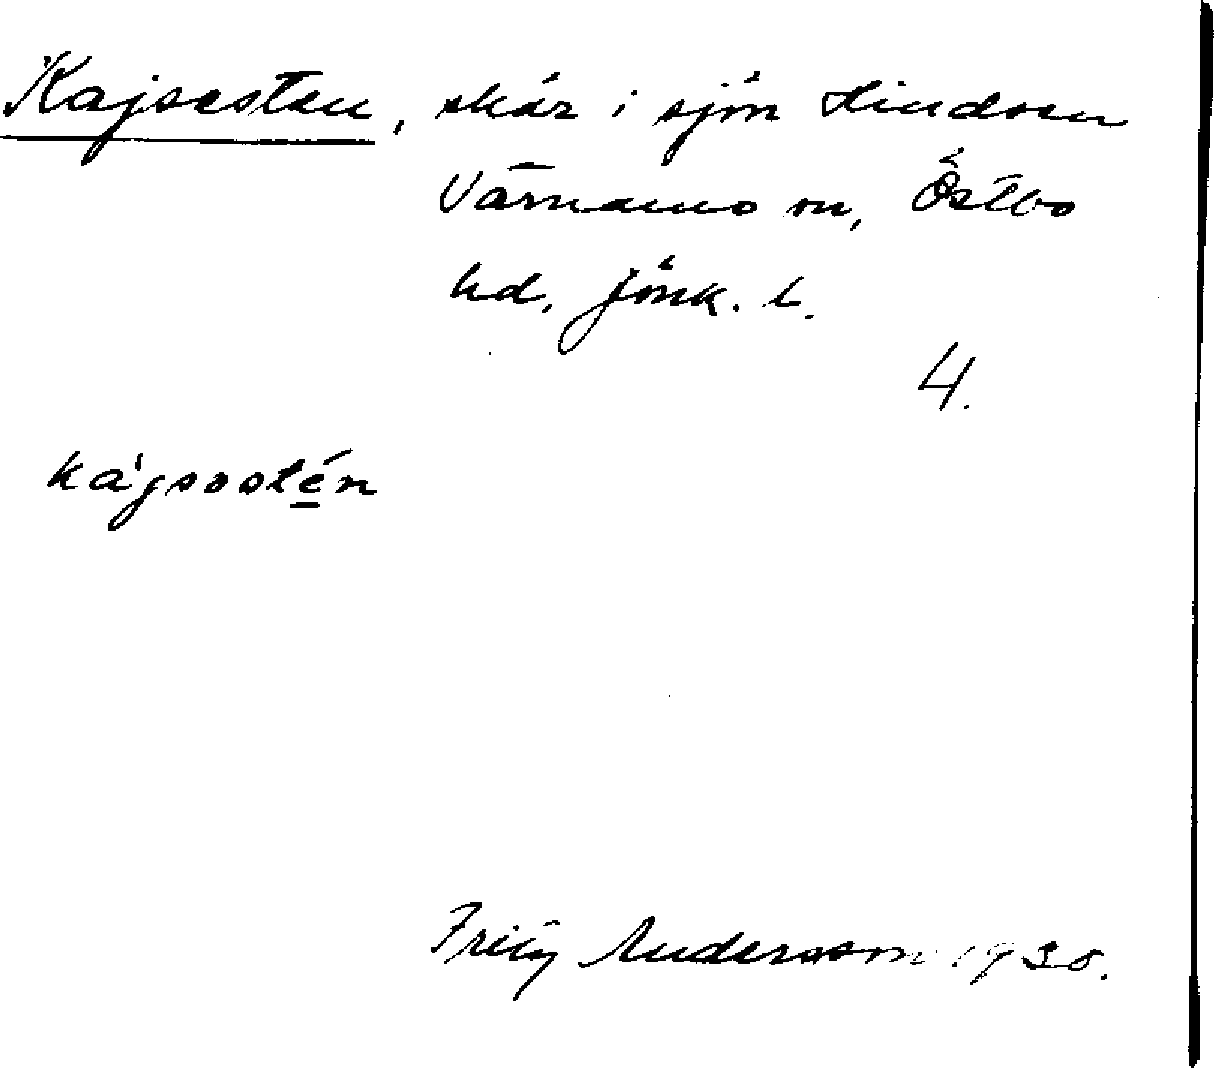 Kajsasten, skär i sjön Hindsen
Värnamo sn, Östbo
hd, Jönk. l.
4.
kájsastén
Fritz Andersson 1930.